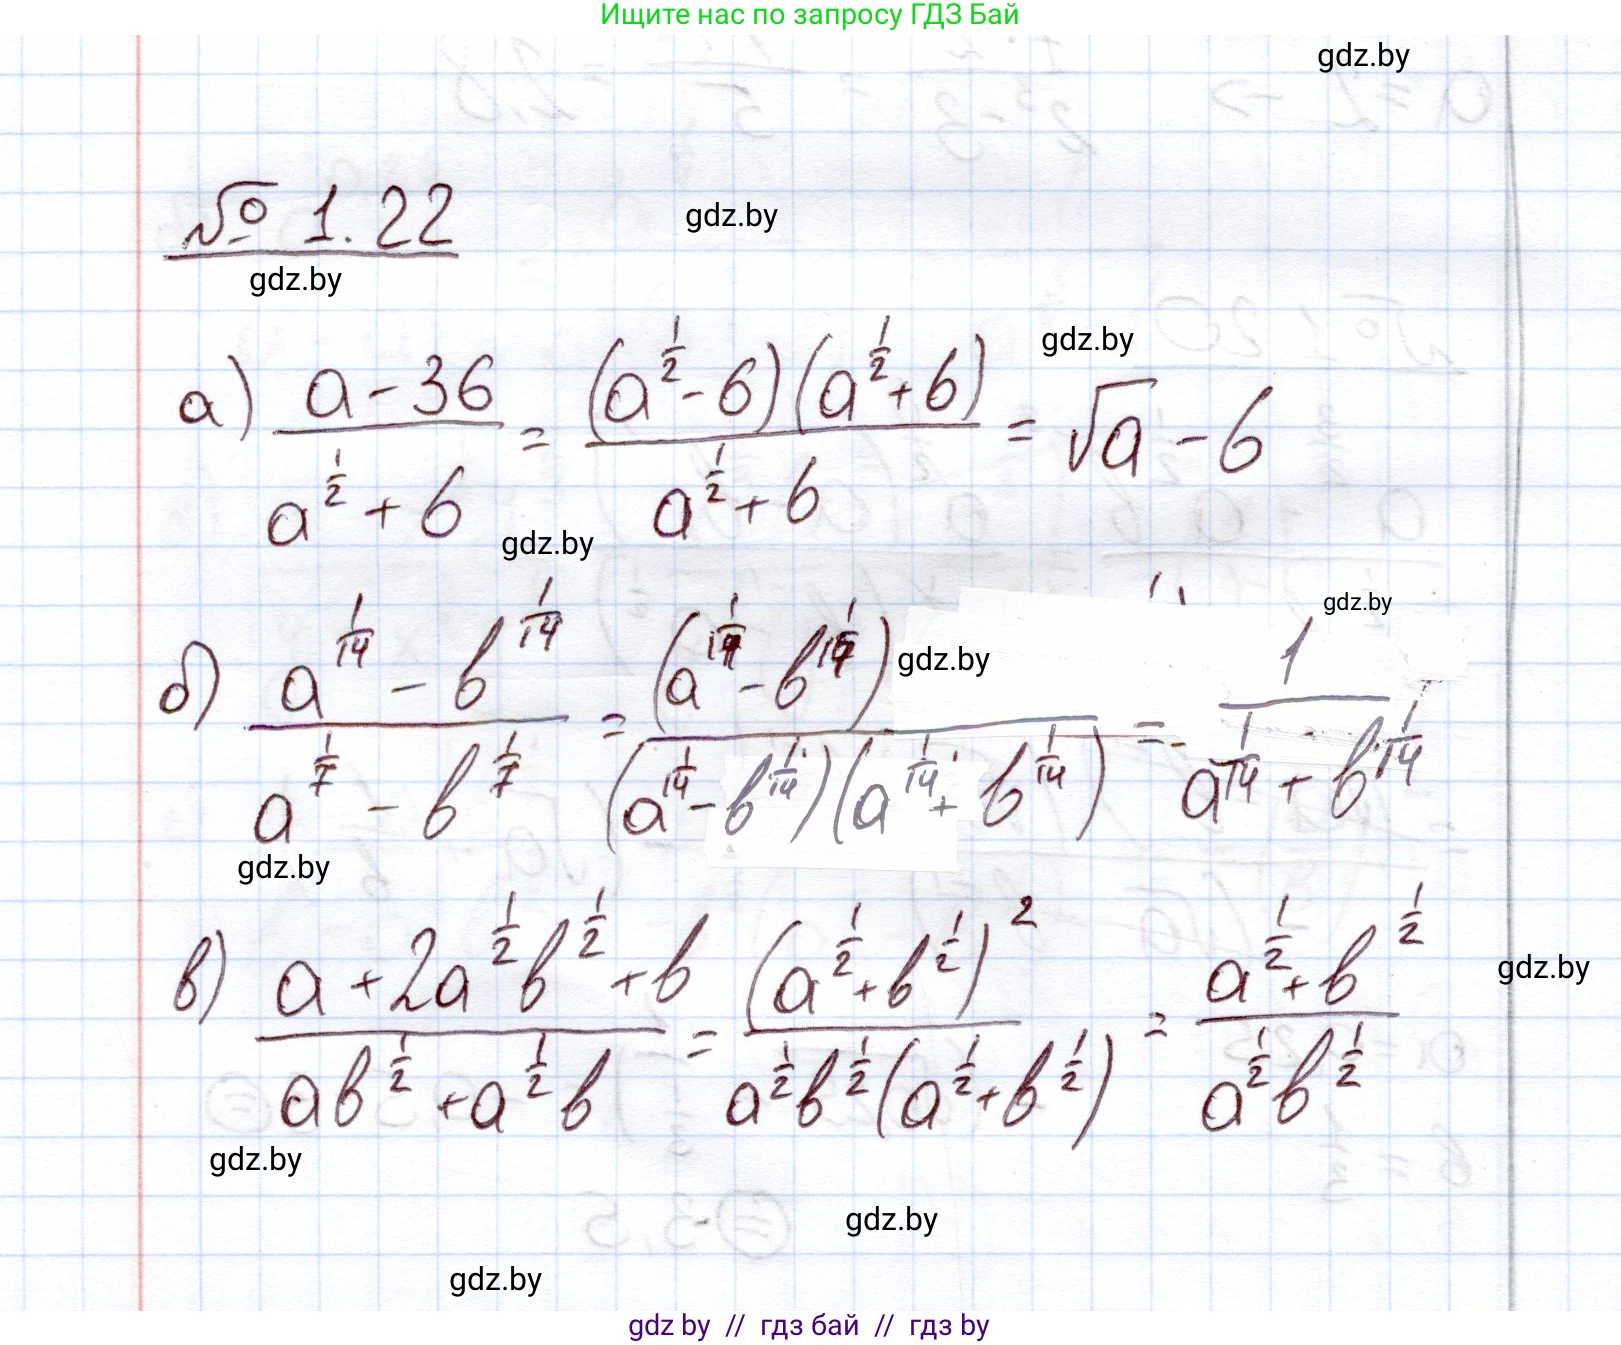 Ищите нас по запросу ГДЗ Бай
gdz.by
№ 1.22
gdz.by
gdz.by
gdz.by
а) (a - 36)/(a^(1/2) + 6) = ((a^(1/2) - 6)(a^(1/2) + 6))/(a^(1/2) + 6) = √a - 6
gdz.by
gdz.by
gdz.by
б) (a^(1/14) - b^(1/14))/(a^(1/7) - b^(1/7)) = (a^(1/14) - b^(1/14))/((a^(1/14) - b^(1/14))(a^(1/14) + b^(1/14))) = 1/(a^(1/14) + b^(1/14))
gdz.by
в) (a + 2a^(1/2)b^(1/2) + b)/(ab^(1/2) + a^(1/2)b) = (a^(1/2) + b^(1/2))^2/(a^(1/2)b^(1/2)(a^(1/2) + b^(1/2))) = (a^(1/2) + b^(1/2))/(a^(1/2)b^(1/2))
gdz.by
gdz.by
gdz.by
gdz.by
gdz by // гдз бай // гдз by